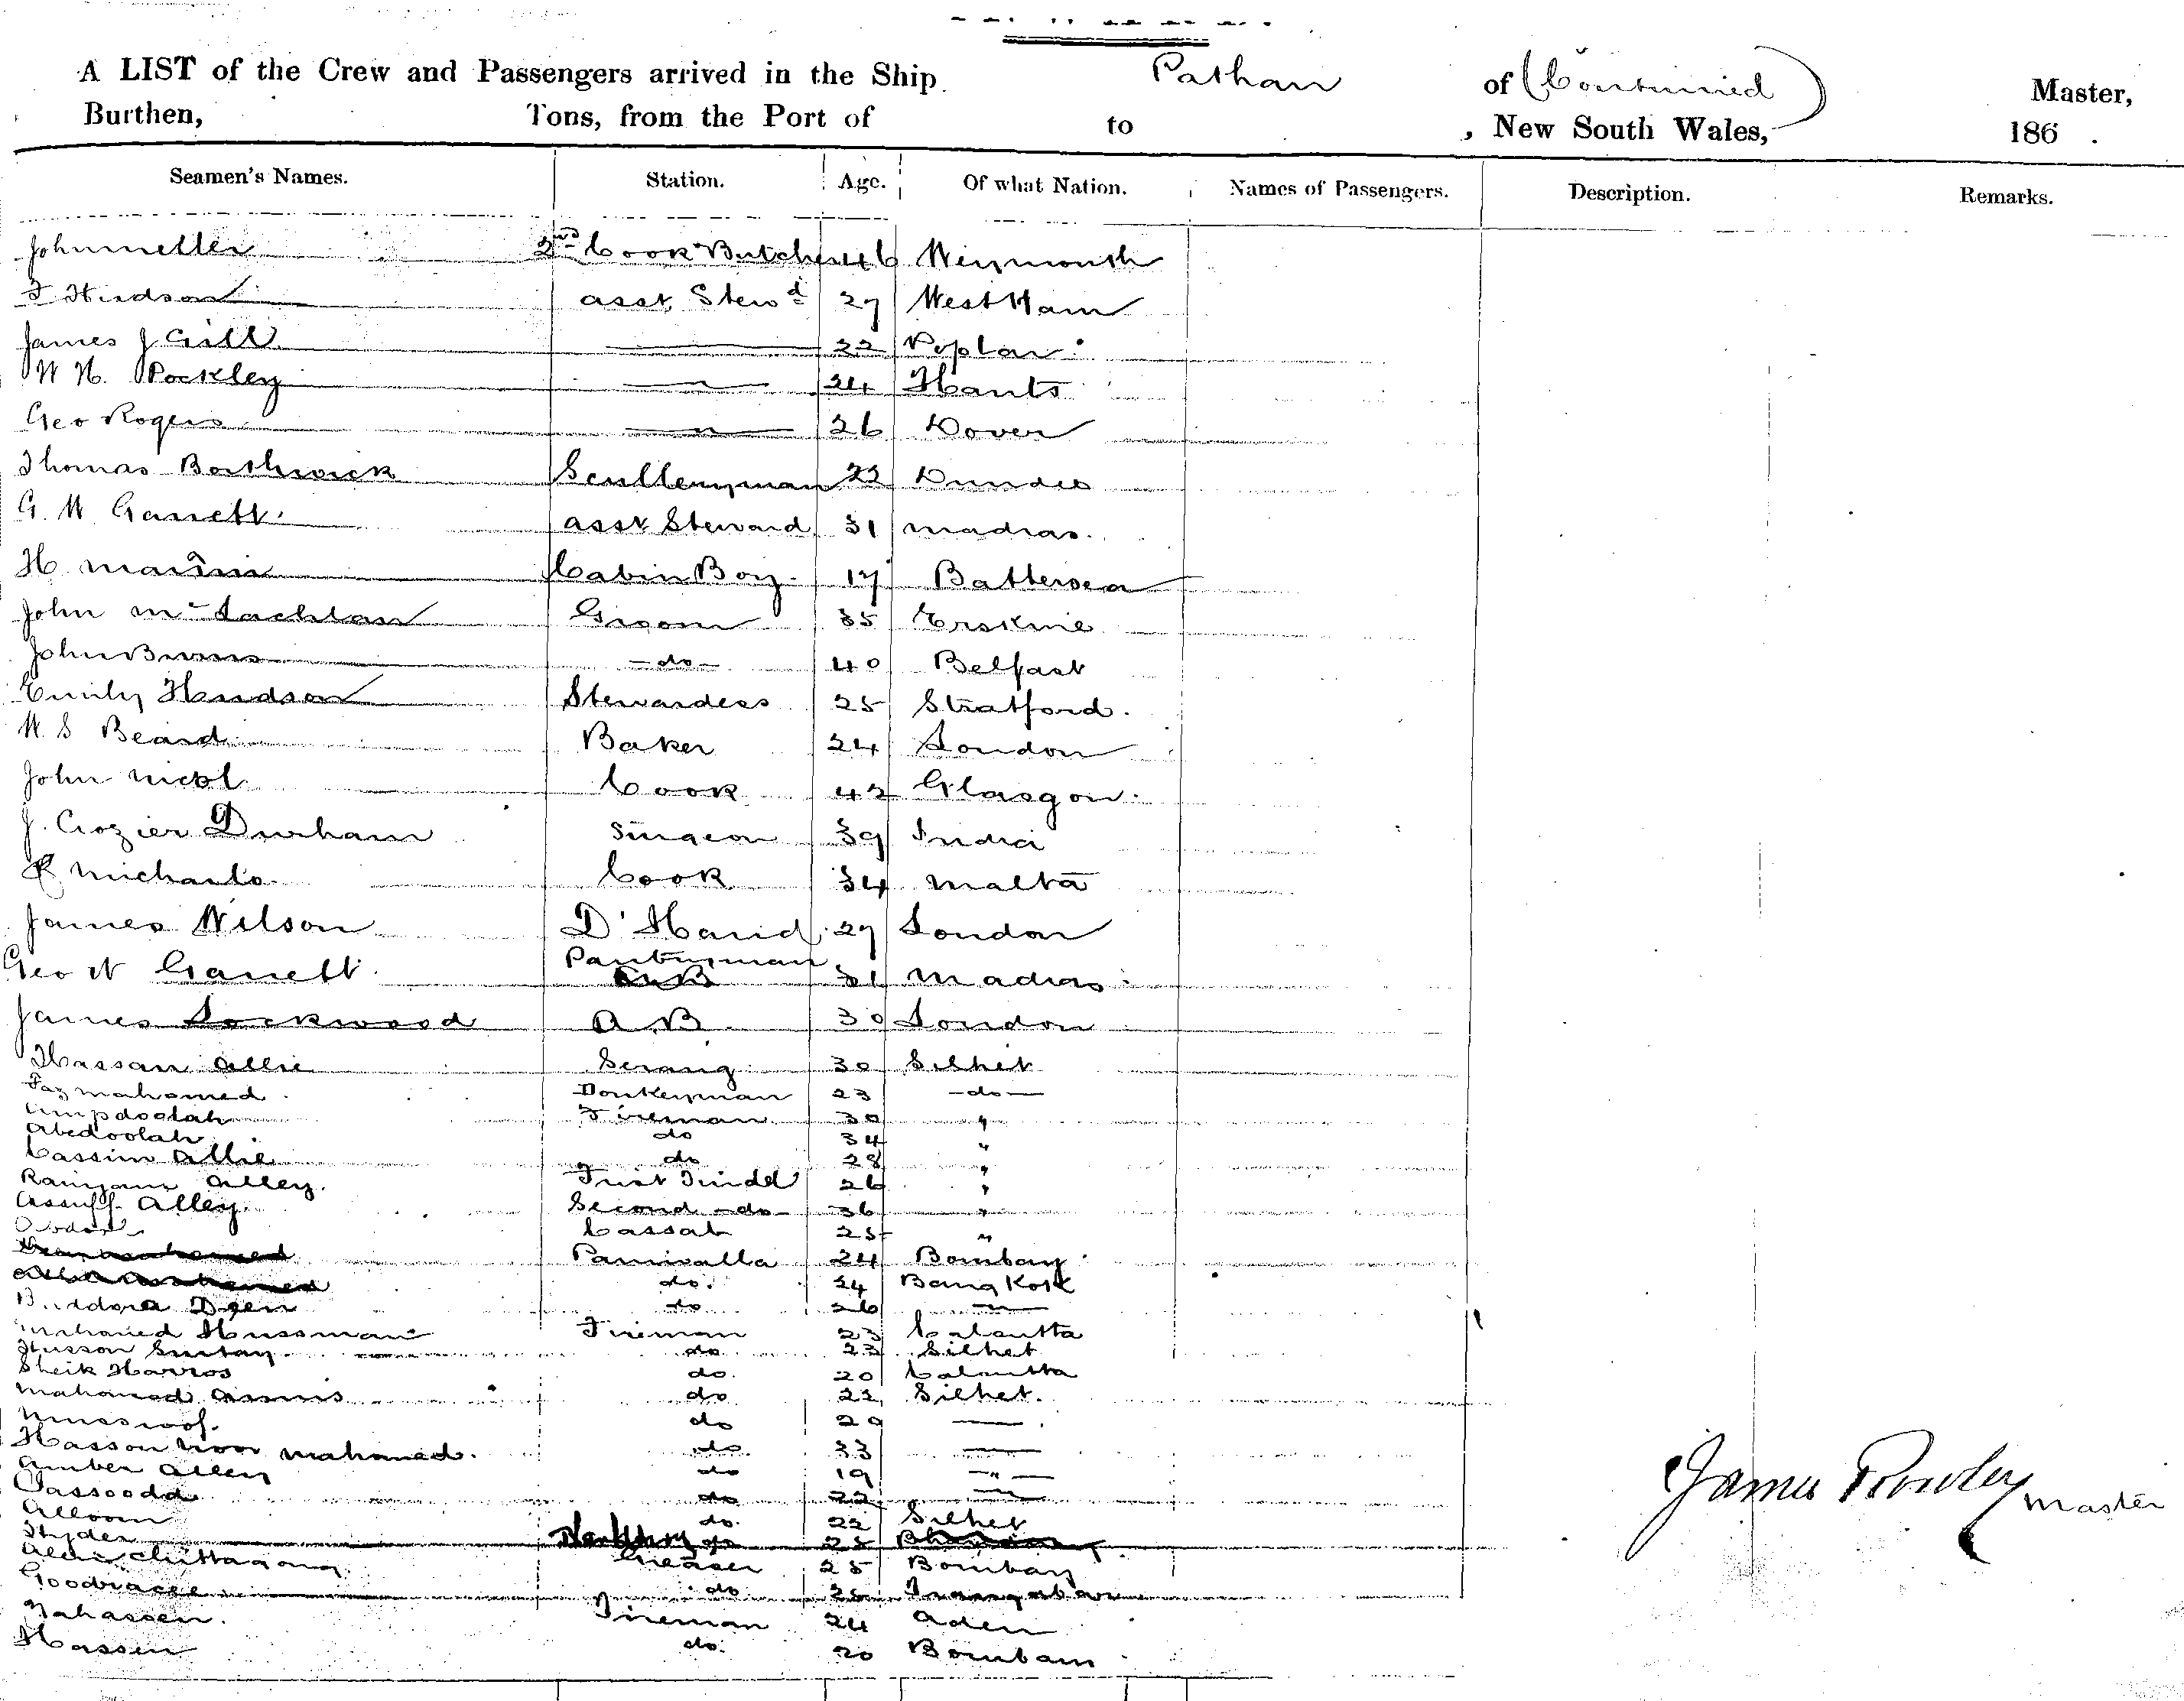 A LIST of the Crew and Passengers arrived in the Ship Pathan of (Continued) Master,
Burthen, Tons, from the Port of to , New South Wales, 186 .
Seamen's Names. Station. Age. Of what Nation. Names of Passengers. Description. Remarks.
John 2nd Cook Butcher 46 Weymouth
F Hudson asst Stewd 27 West Ham
James J Gill 22 Poplar
W H. Pockley " 24 Hants
Geo Rogers " 26 Dover
Thomas Borthwick Scullenyman 22 Dundee
G. W Garrett asst Steward 31 madras
H. Cabin Boy 17 Battersea
John McLachlan Groom 35 Erskine
John Burns do 40 Belfast
Emily Hudson Stewardess 25 Stratford.
W. S Beard Baker 24 London
John Cook 42 Glasgow
J. Crozier Durham Surgeon 39 India
Cook 34 Malta
James Wilson D'Hand 27 London
Geo W Garrett Pantryman 31 Madras
James Lockwood A B 30 London
Hassan Allie Serang 30 Silhet
mahomed Donkeyman 23 do
Fireman 30 "
Abedoolah do 34 "
Cassim Allie do 28 "
Alley First Tindel 26 "
Assuff Alley Second do 36 "
Cassab 25 "
Paniwalla 24 Bombay
do. 24 Bang Kok
do 26 "
Mahomed Hussman Fireman 23 Calcutta
Husson do 23 Silhet
Sheik do. 20 Calcutta
Mahomed do 22 Silhet.
do 29
Hasson Noor Mahomed. do 33
Amber Alley do 19 "
do 22
Alloom do. 22 Silhet
Hyder 25
Chittagong Greaser 25 Bombay
do 26
Fireman 24 Aden
Hassen do. 20 Bombay
James Rowley Master